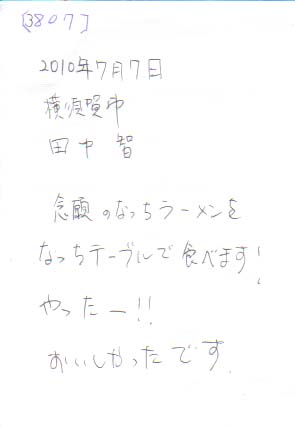 [3807]
2010年7月7日
横須賀市
田中 智
念願のなっちラーメンを
なっちテーブルで食べます!
やったー!!
おいしかったです